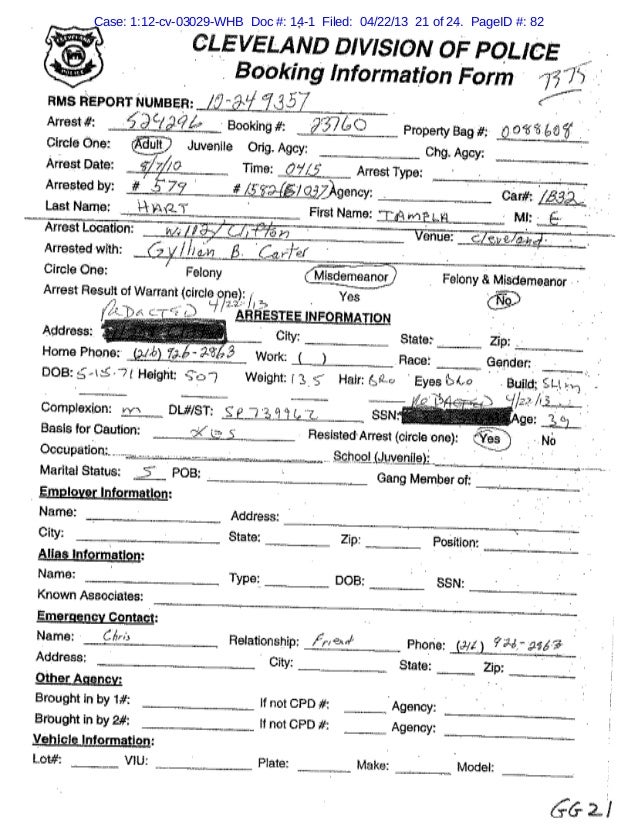 Case: 1:12-cv-03029-WHB Doc #: 14-1 Filed: 04/22/13 21 of 24. PageID #: 82
CLEVELAND DIVISION OF POLICE
Booking Information Form 7375
RMS REPORT NUMBER: 10-249357
Arrest #: 524296 Booking #: 23760 Property Bag #: 0088608
Circle One: Adult Juvenile Orig. Agcy: Chg. Agcy:
Arrest Date: 8/7/10 Time: 0415 Arrest Type:
Arrested by: # 579 # 1582 (51037) Agency: Car#: 1B32
Last Name: HART First Name: TAMELA MI: E
Arrest Location: W117/Clifton Venue: Cleveland
Arrested with: Gyllian B. Carter
Circle One: Felony Misdemeanor Felony & Misdemeanor
Arrest Result of Warrant (circle one): Yes No
REDACTED 4/22/13
ARRESTEE INFORMATION
Address: City: State: Zip:
Home Phone: (216) 926-2863 Work: ( ) Race: Gender:
DOB: 5-15-71 Height: 507 Weight: 135 Hair: BRO Eyes BRO Build: SLIM
REDACTED 4/22/13
Complexion: M DL#/ST: SP739962 SSN: Age: 39
Basis for Caution: Resisted Arrest (circle one): Yes No
Occupation: School (Juvenile):
Marital Status: S POB: Gang Member of:
Employer Information:
Name: Address:
City: State: Zip: Position:
Alias Information:
Name: Type: DOB: SSN:
Known Associates:
Emergency Contact:
Name: Chris Relationship: Friend Phone: (216) 926-2863
Address: City: State: Zip:
Other Agency:
Brought in by 1#: If not CPD #: Agency:
Brought in by 2#: If not CPD #: Agency:
Vehicle Information:
Lot#: VIU: Plate: Make: Model:
GG21